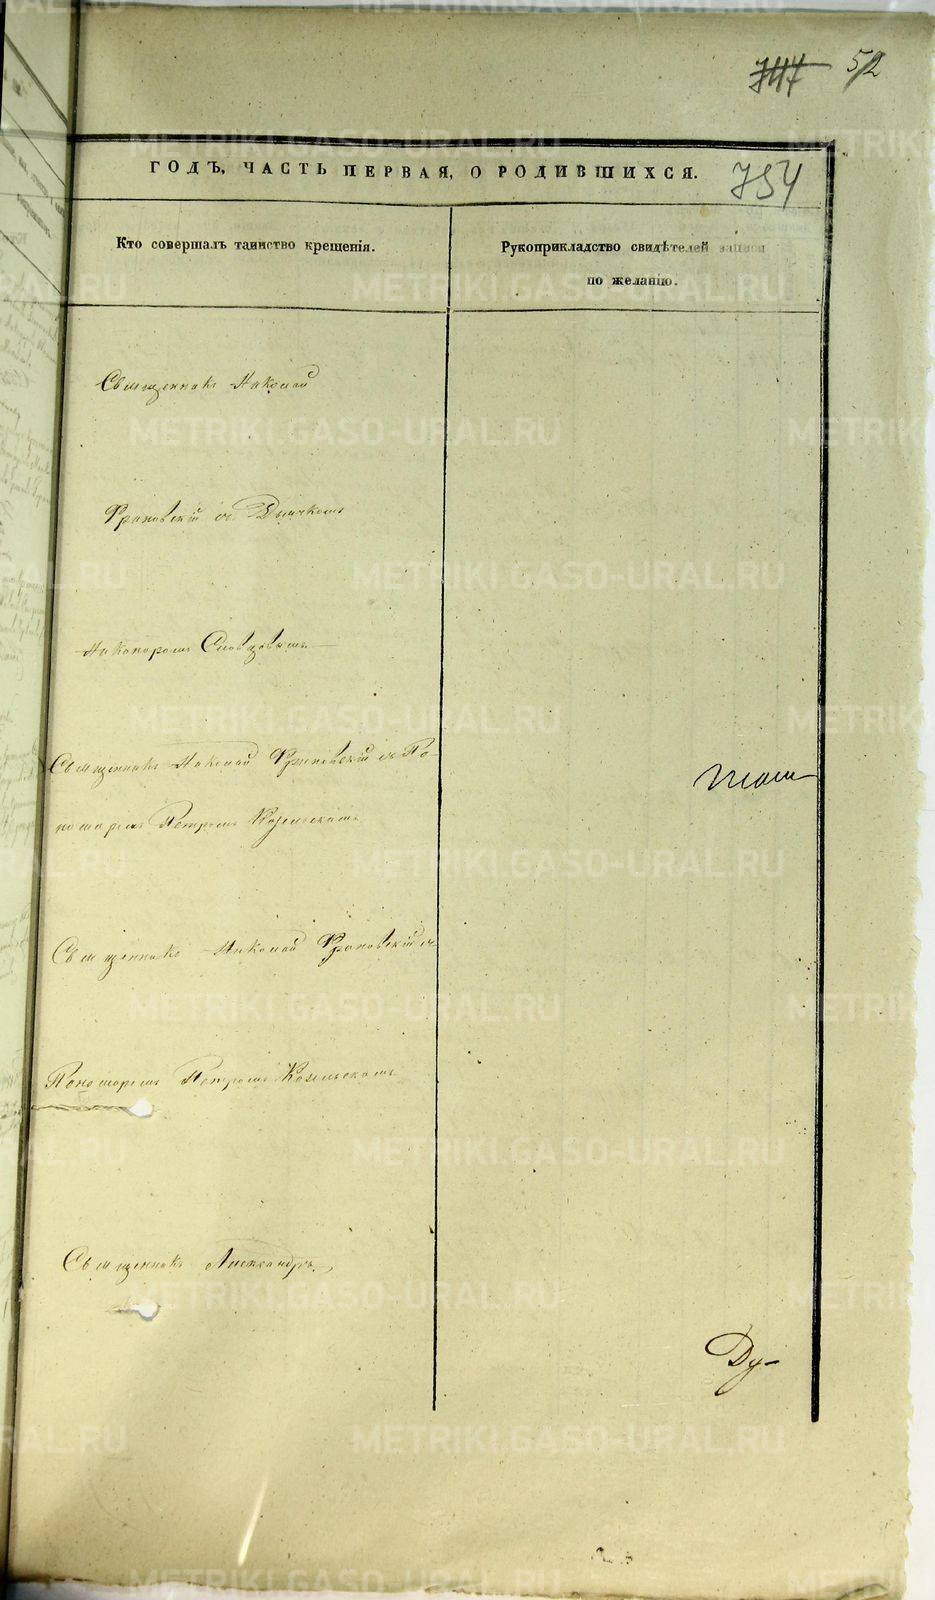 747 52
ГОДЪ, ЧАСТЬ ПЕРВАЯ, О РОДИВШИХСЯ. 754
Кто совершалъ таинство крещенія.
Рукоприкладство свидѣтелей записи
по желанію.
Священникъ Николай
Франовскій съ Дьячкомъ
Никаноромъ Словцовымъ
Священникъ Николай Франовскій съ По-
номаремъ Петромъ Козельскимъ
Священникъ Николай Франовскій съ
Пономаремъ Петромъ Козельскимъ
Священникъ Александръ
Ду-
METRIKI.GASO-URAL.RU